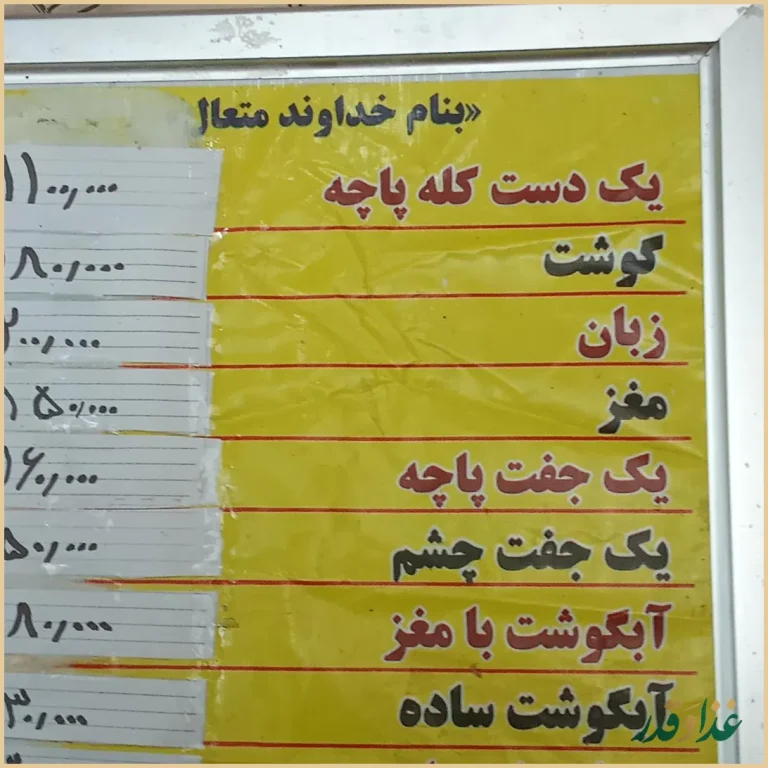 «بنام خداوند متعال
یک دست کله پاچه
گوشت ۸۰,۰۰۰
زبان
مغز ۱۵۰,۰۰۰
یک جفت پاچه ۱۶۰,۰۰۰
یک جفت چشم ۵۰,۰۰۰
آبگوشت با مغز ۸۰,۰۰۰
آبگوشت ساده ۳۰,۰۰۰